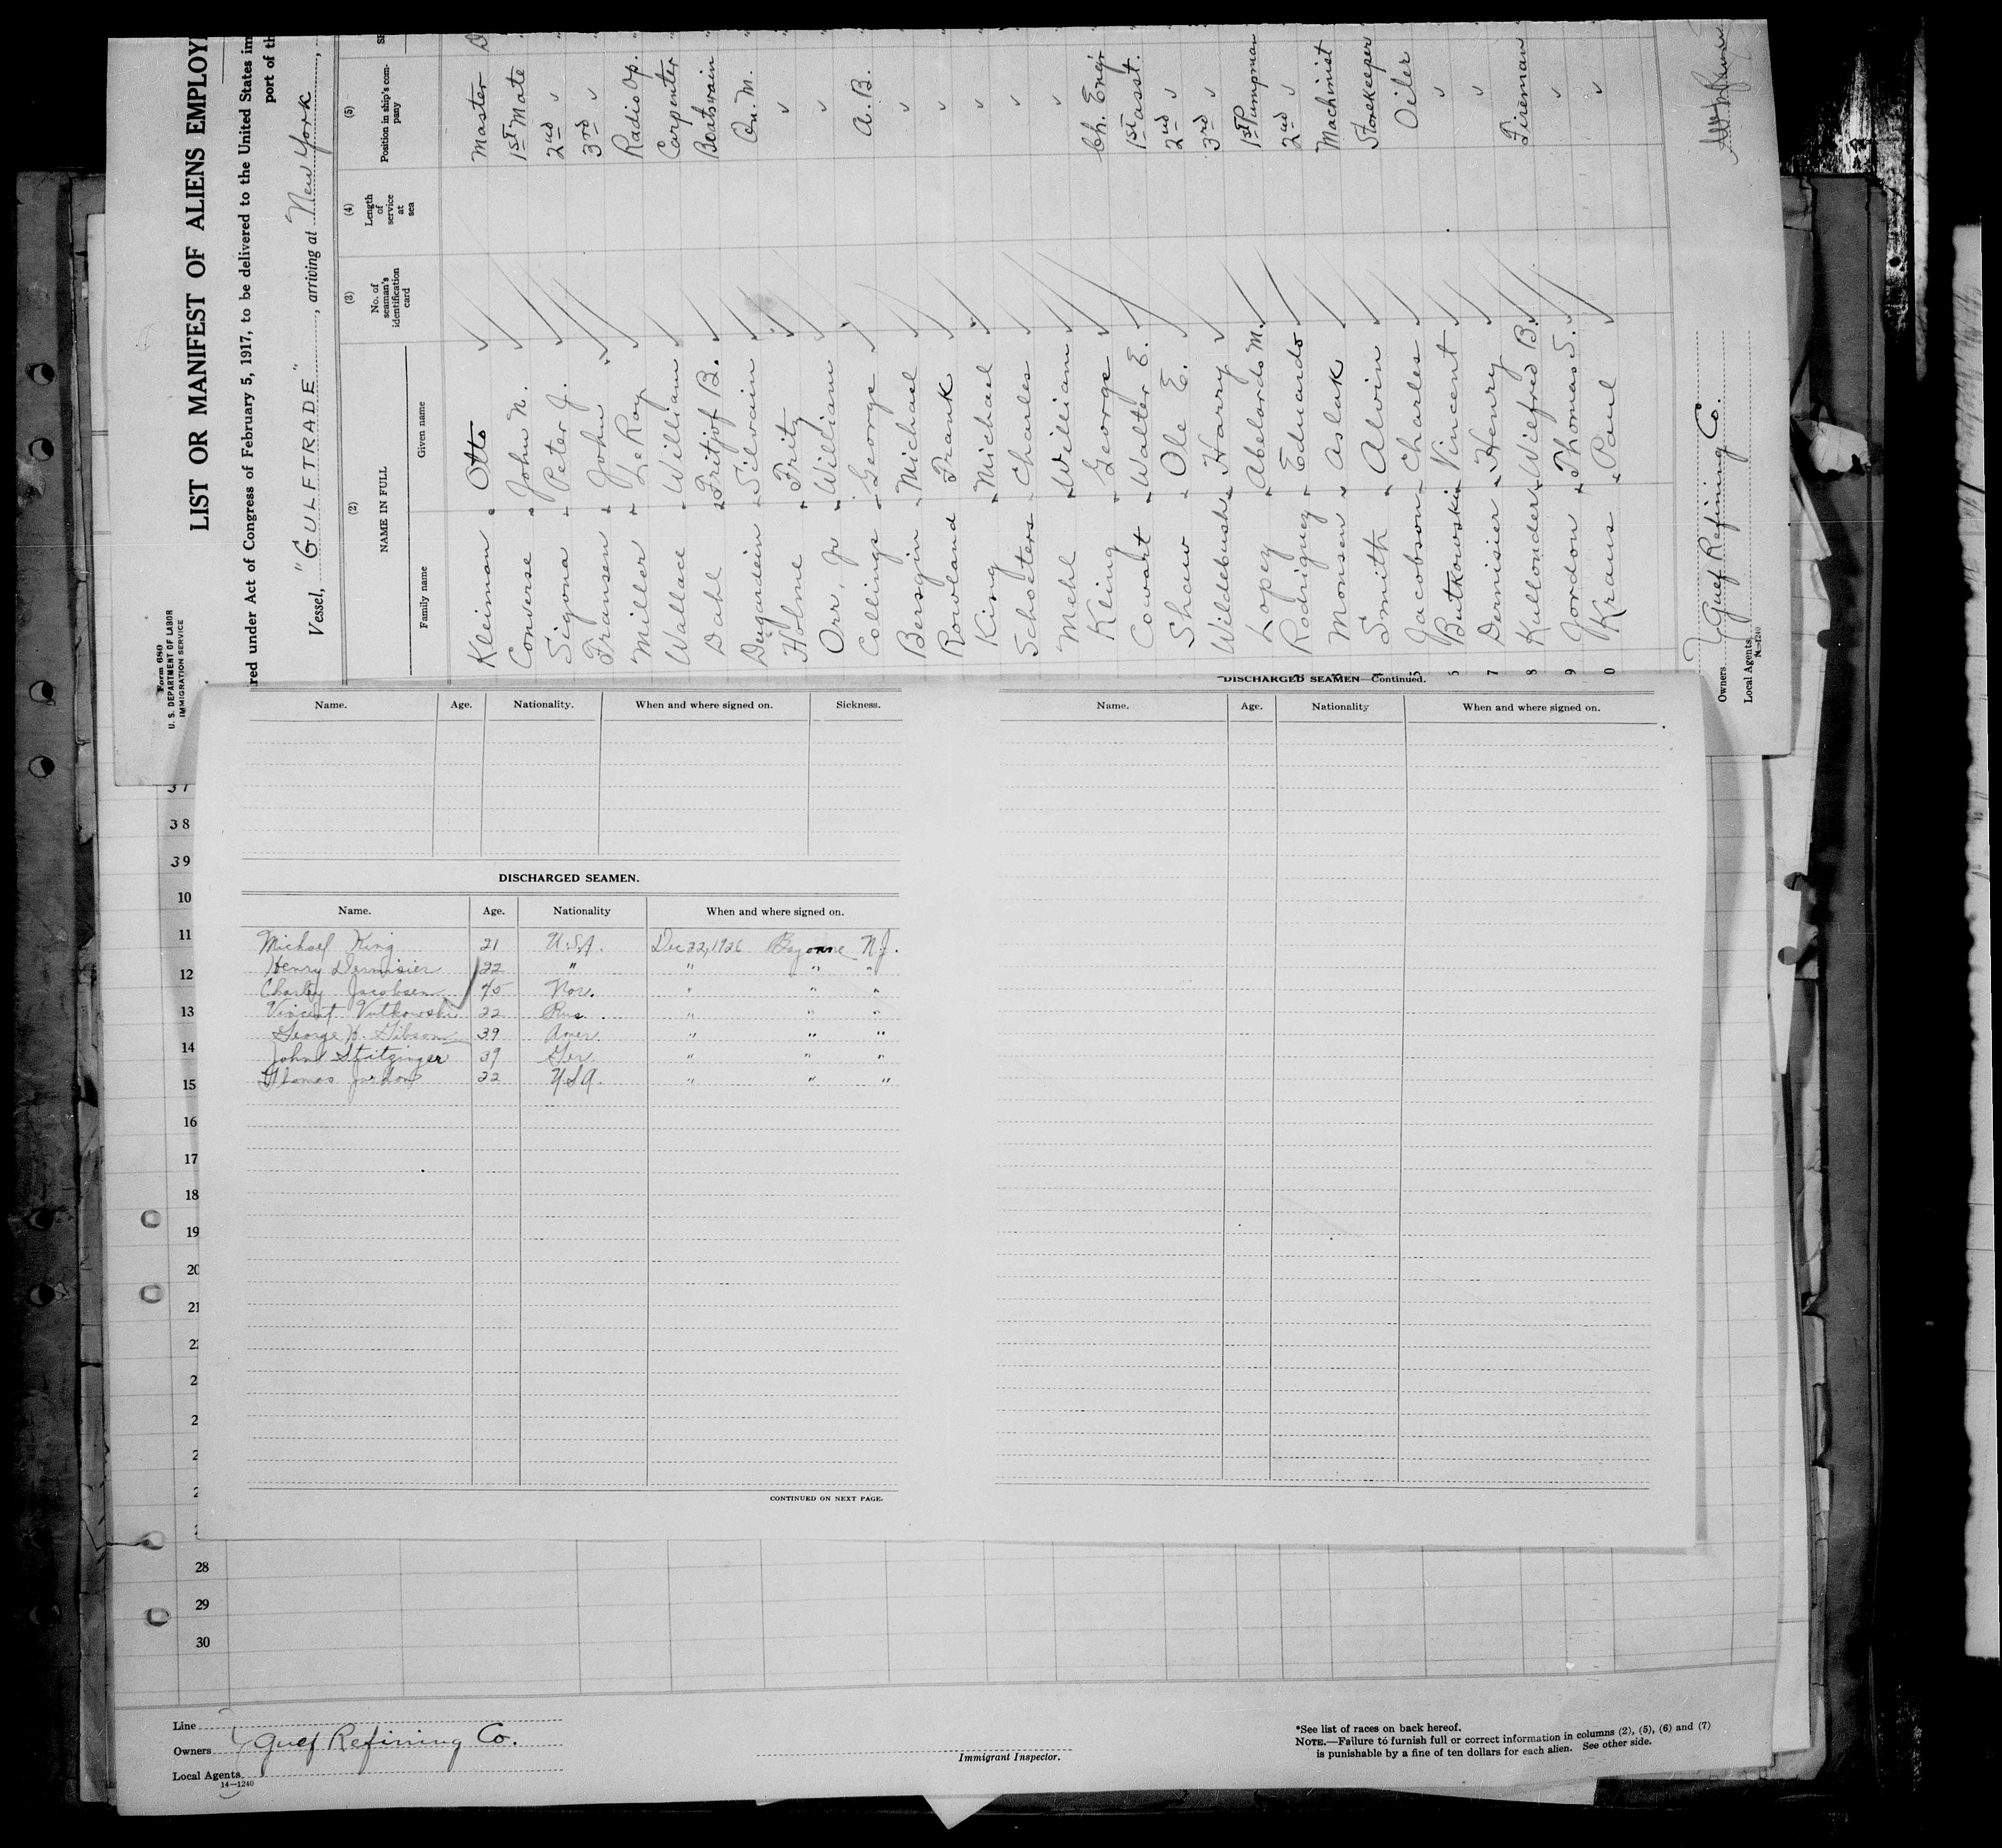 Form 680
U. S. DEPARTMENT OF LABOR
IMMIGRATION SERVICE
LIST OR MANIFEST OF ALIENS EMPLOY
red under Act of Congress of February 5, 1917, to be delivered to the United States im
port of th
Vessel, "GULFTRADE", arriving at New York,
(2) (3) (4) (5)
NAME IN FULL No. of seaman's identification card Length of service at sea Position in ship's company
Family name Given name
Kleiman Otto Master
Converse John N. 1st Mate "
Sigona Peter J. 2nd " "
Fransen John 3rd " "
Miller LeRoy Radio Op. "
Wallace William Carpenter "
Dahl Fritjof B. Boatswain "
Dugardein Silvain Qu. M. "
Holme Fritz " "
Orr, Jr William " "
Collings George A.B. "
Bersgin Michael " "
Rowland Frank " "
King Michael " "
Schoeters Charles " "
Mehl William " "
Kling George Ch. Engr
Cowart Walter E. 1st asst.
Shaw Ole E. 2nd "
Wildebush Harry 3rd "
Lopez Abelardo M. 1st Pumpman
Rodriguez Eduardo 2nd "
Monsen Aslak Machinist
Smith Alvin Storekeeper
Jacobson Charles Oiler
Butkowski Vincent "
Dermisier Henry "
Kullonder Wilfred B. Fireman
Jordon Thomas S. "
Kraus Paul "
Owners Gulf Refining Co.
Local Agents
14—1240
Name. Age. Nationality. When and where signed on. Sickness.
DISCHARGED SEAMEN.
Name. Age. Nationality When and where signed on.
Michael King 21 U.S.A. Dec 22, 1926 Bayonne N.J.
Henry Dermisier 22 " " " "
Charley Jacobsen 45 Nor. " " "
Vincent Vutkowski 22 Rus. " " "
George H. Gibson 39 Amer. " " "
John Stitzinger 39 Ger. " " "
Thomas Jordon 22 U.S.A. " " "
CONTINUED ON NEXT PAGE.
DISCHARGED SEAMEN—Continued.
Name. Age. Nationality When and where signed on.
37
38
39
10
11
12
13
14
15
16
17
18
19
20
21
28
29
30
Line
Owners Gulf Refining Co.
Local Agents
14—1240
Immigrant Inspector.
*See list of races on back hereof.
NOTE.—Failure to furnish full or correct information in columns (2), (5), (6) and (7)
is punishable by a fine of ten dollars for each alien. See other side.